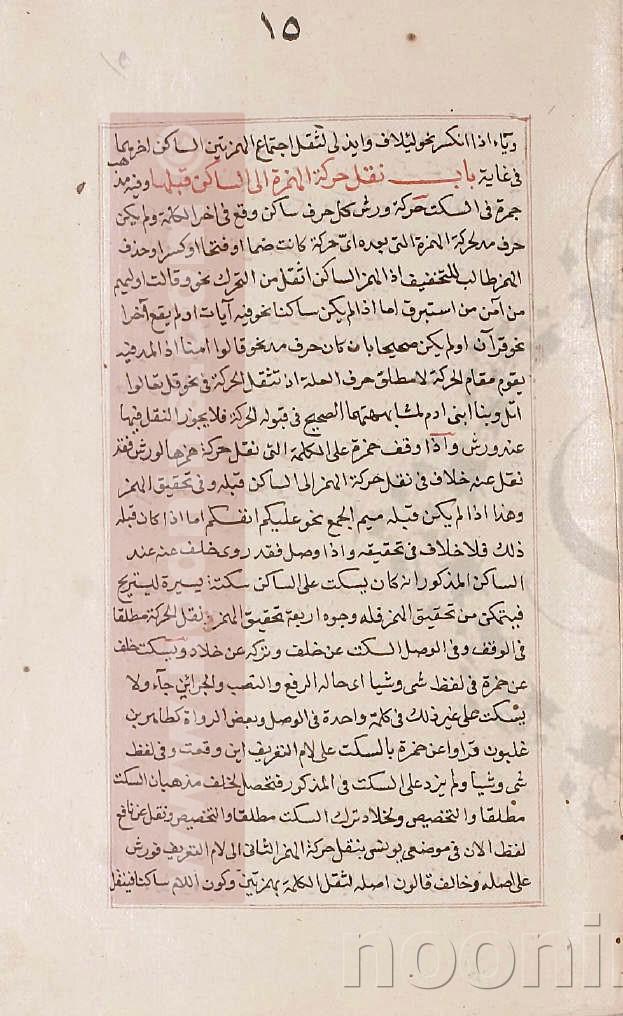 ١٥
وياء اذا انكسر نحو لئيلاف وايذن لى لثقل اجتماع الهمزتين الساكن اخريهما
فى غاية باب نقل حركة الهمزة الى الساكن قبلها وفيه مذهب
حمزة فى السكت حركة ورش كل حرف ساكن وقع فى اخر الكلمة ولم يكن
حرف مد لحركة الهمزة التى بعده اى حركة كانت ضما او فتحا او كسرا وحذف
الهمز طالب للتخفيف اذ الهمز الساكن اثقل من التحرك نحو وقالت اوليهم
من آمن من استبرق اما اذا لم يكن ساكنا نحو فيه آيات او لم يقع آخرا
نحو قرآن او لم يكن صحيحا بان كان حرف مد نحو قالوا امنا اذ المد فيه
يقوم مقام الحركة لا مطلق حرف العلة اذ تنقل الحركة فى نحو قل تعالوا
اتل ونبا ابنى ادم لمشابهتهما الصحيح فى قبوله الحركة فلا يجوز النقل فيها
عند ورش واذا وقف حمزة على الكلمة التى نقل حركة همزها لورش فقد
نقل عنه خلاف فى نقل حركة الهمز الى الساكن قبله وفى تحقيق الهمز
وهذا اذا لم يكن قبله ميم الجمع نحو عليكم انفسكم اما اذا كان قبله
ذلك فلا خلاف فى تحقيقه واذا وصل فقد روى خلف عنه عند
الساكن المذكور انه كان يسكت على الساكن سكتة يسيرة ليستريح
فيتمكن من تحقيق الهمز فله وجوه اربعة تحقيق الهمز ونقل الحركة مطلقا
فى الوقف وفى الوصل السكت عن خلف وتركه عن خلاد ويسكت خلف
عن حمزة فى لفظ شئ وشيا اى حاله الرفع والنصب والجر اين جآء ولا
يسكت على غير ذلك فى كلمة واحدة فى الوصل وبعض الرواة كطاهر بن
غلبون قراوا عن حمزة بالسكت على لام التعريف اين وقعت وفى لفظ
شئ وشيا ولم يزد على السكت فى المذكور فتحصل لخلف مذهبان السكت
مطلقا والتخصيص ولخلاد ترك السكت مطلقا والتخصيص ونقل عن نافع
لفظ الان فى موضعى يونس بنقل حركة الهمز الثانى الى لام التعريف فورش
على اصله وخالف قالون اصله لثقل الكلمة بهمزتين وكون اللام ساكنا فينقل
noonin